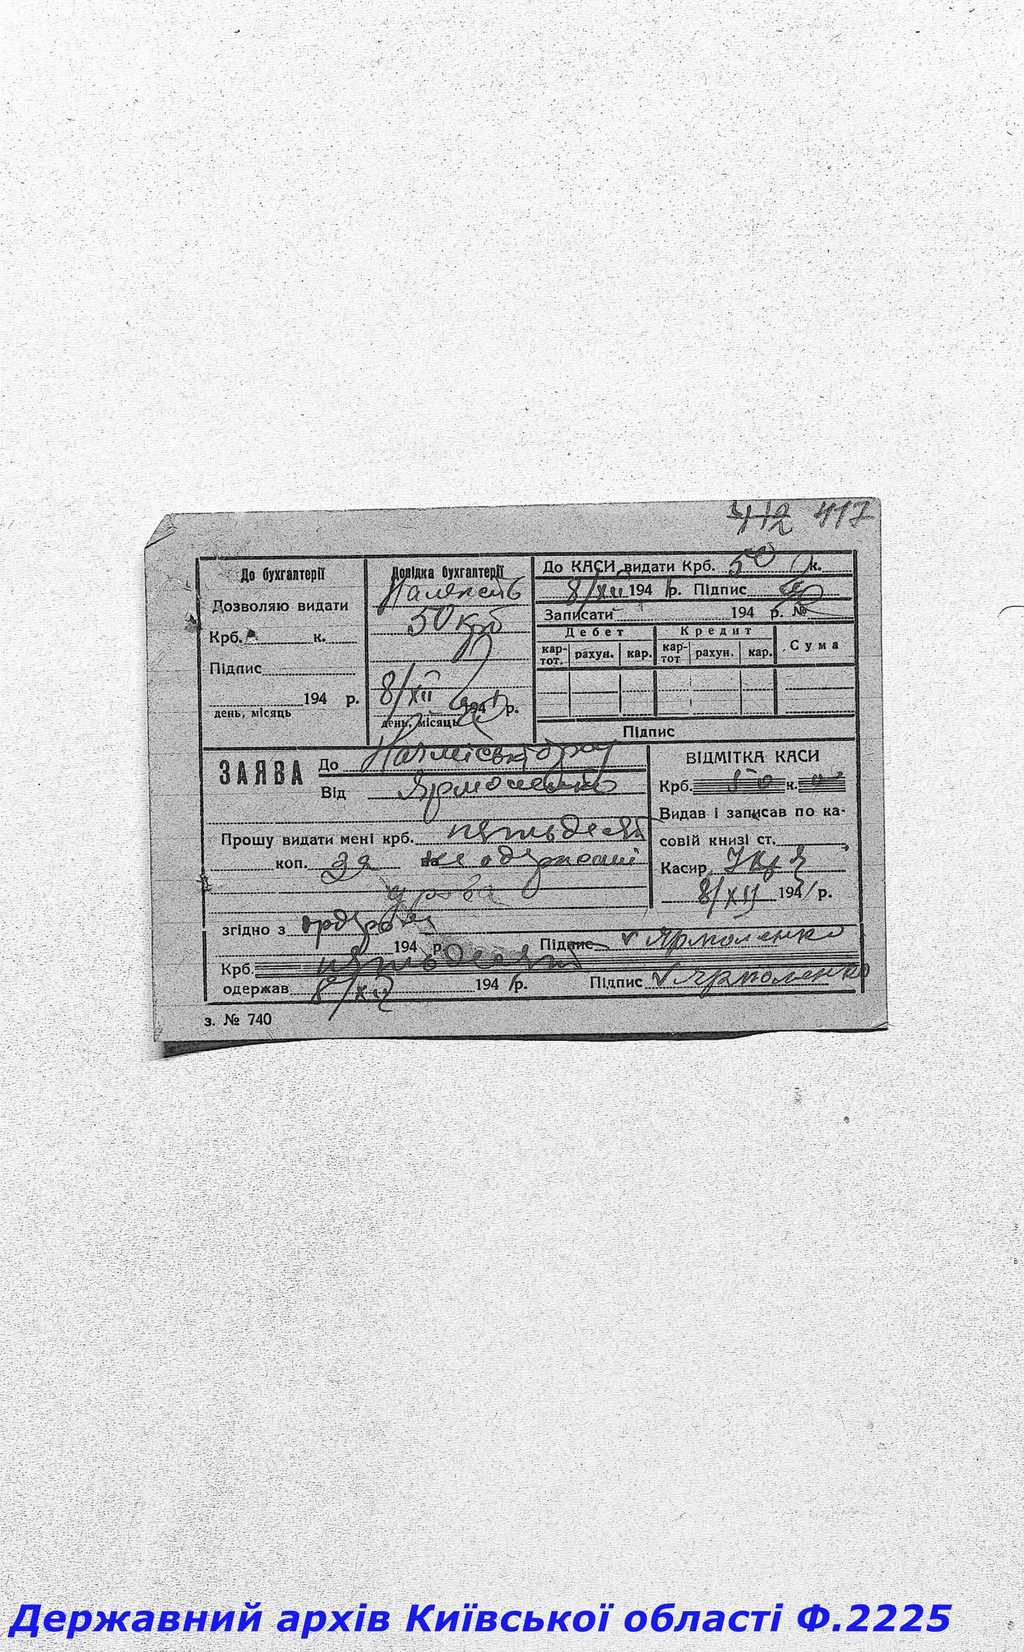 412 417
До бухгалтерії
Дозволяю видати
Крб. к.
Підпис
194 р.
день, місяць
Довідка бухгалтерії
Належить
50 крб
8/XII 1941 р.
день, місяць
До КАСИ видати Крб. 50 к.
8/XII 1941 р. Підпис
Записати 194 р. №
Дебет Кредит Сума
кар-тот. рахун. кар. кар-тот рахун. кар.
Підпис
ЗАЯВА
До
Від Ярмоленко
Прошу видати мені крб. пятьдесят
коп. за не одержані
дрова
згідно з ордером
194 р. Підпис v Ярмоленко
Крб. пятьдесят
одержав 8/XII 1941 р. Підпис v Ярмоленко
ВІДМІТКА КАСИ
Крб. 50 к.
Видав і записав по ка-
совій книзі ст.
Касир
8/XII 1941 р.
з. № 740
Державний архів Київської області Ф.2225